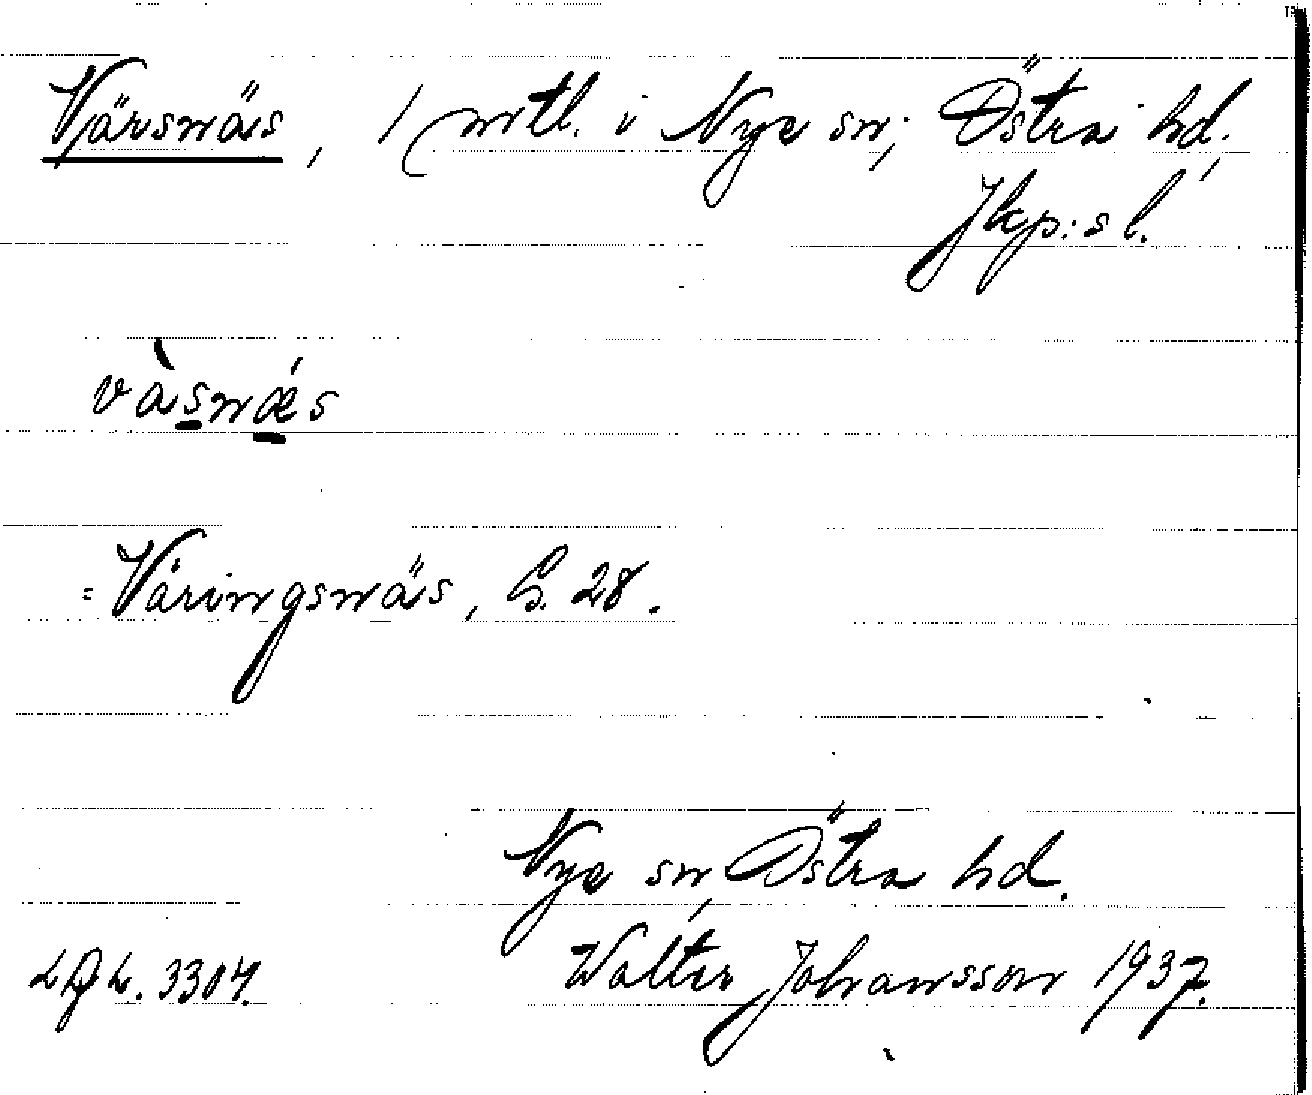 Vjärsnäs, 1 mtl. i Nye sn, Östra hd,
Jkp:s l.
vàsnǽs
= Väringsnäs, S. 28.
Nye sn, Östra hd.
Walter Johansson 1937.